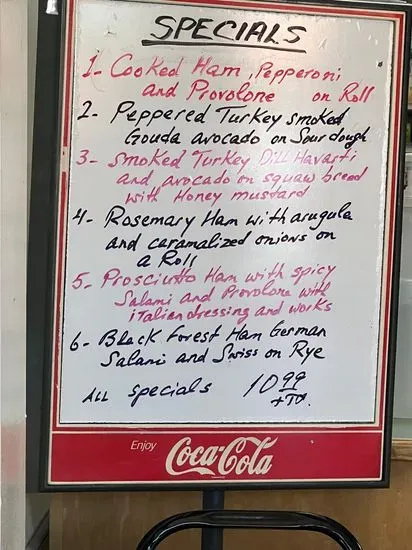 SPECIALS
1- Cooked Ham, Pepperoni
and Provolone on Roll
2- Peppered Turkey smoked
Gouda avocado on Sourdough
3- Smoked Turkey Dill Havarti
and avocado on squaw bread
with Honey mustard
4- Rosemary Ham with arugula
and caramalized onions on
a Roll
5- Prosciutto Ham with spicy
Salami and Provolone with
italien dressing and works
6- Black Forest Ham German
Salami and Swiss on Rye
ALL specials 10 99
Enjoy
Coca-Cola